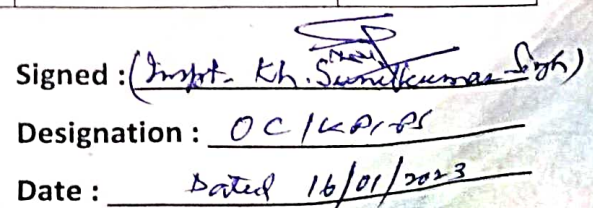 Signed : (Inspt. Kh. Sunilkumar Singh)
Designation : OC/KPI-PS
Date : Dated 16/01/2023